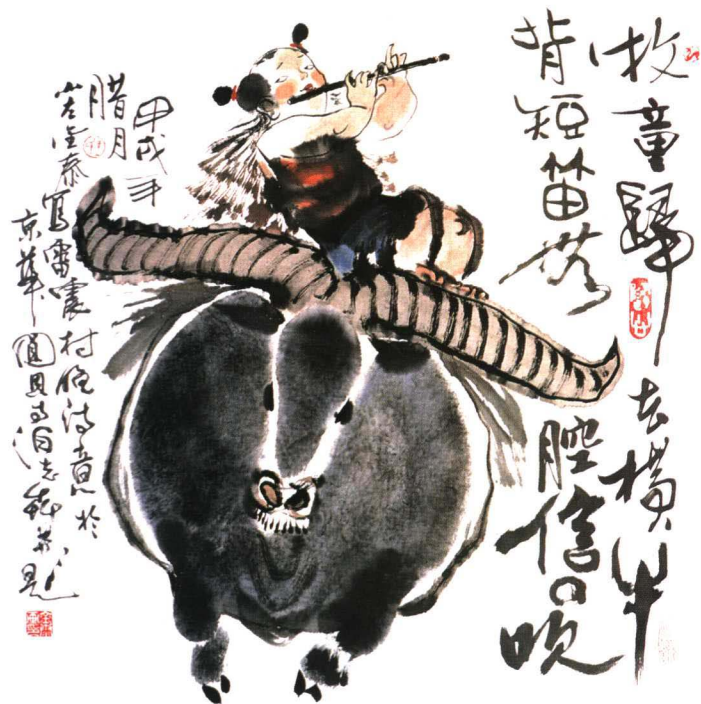 牧童歸去橫牛
背短笛無腔信口吹
甲戌年
腊月
岩全泰寫雷震村晚詩意於
京華